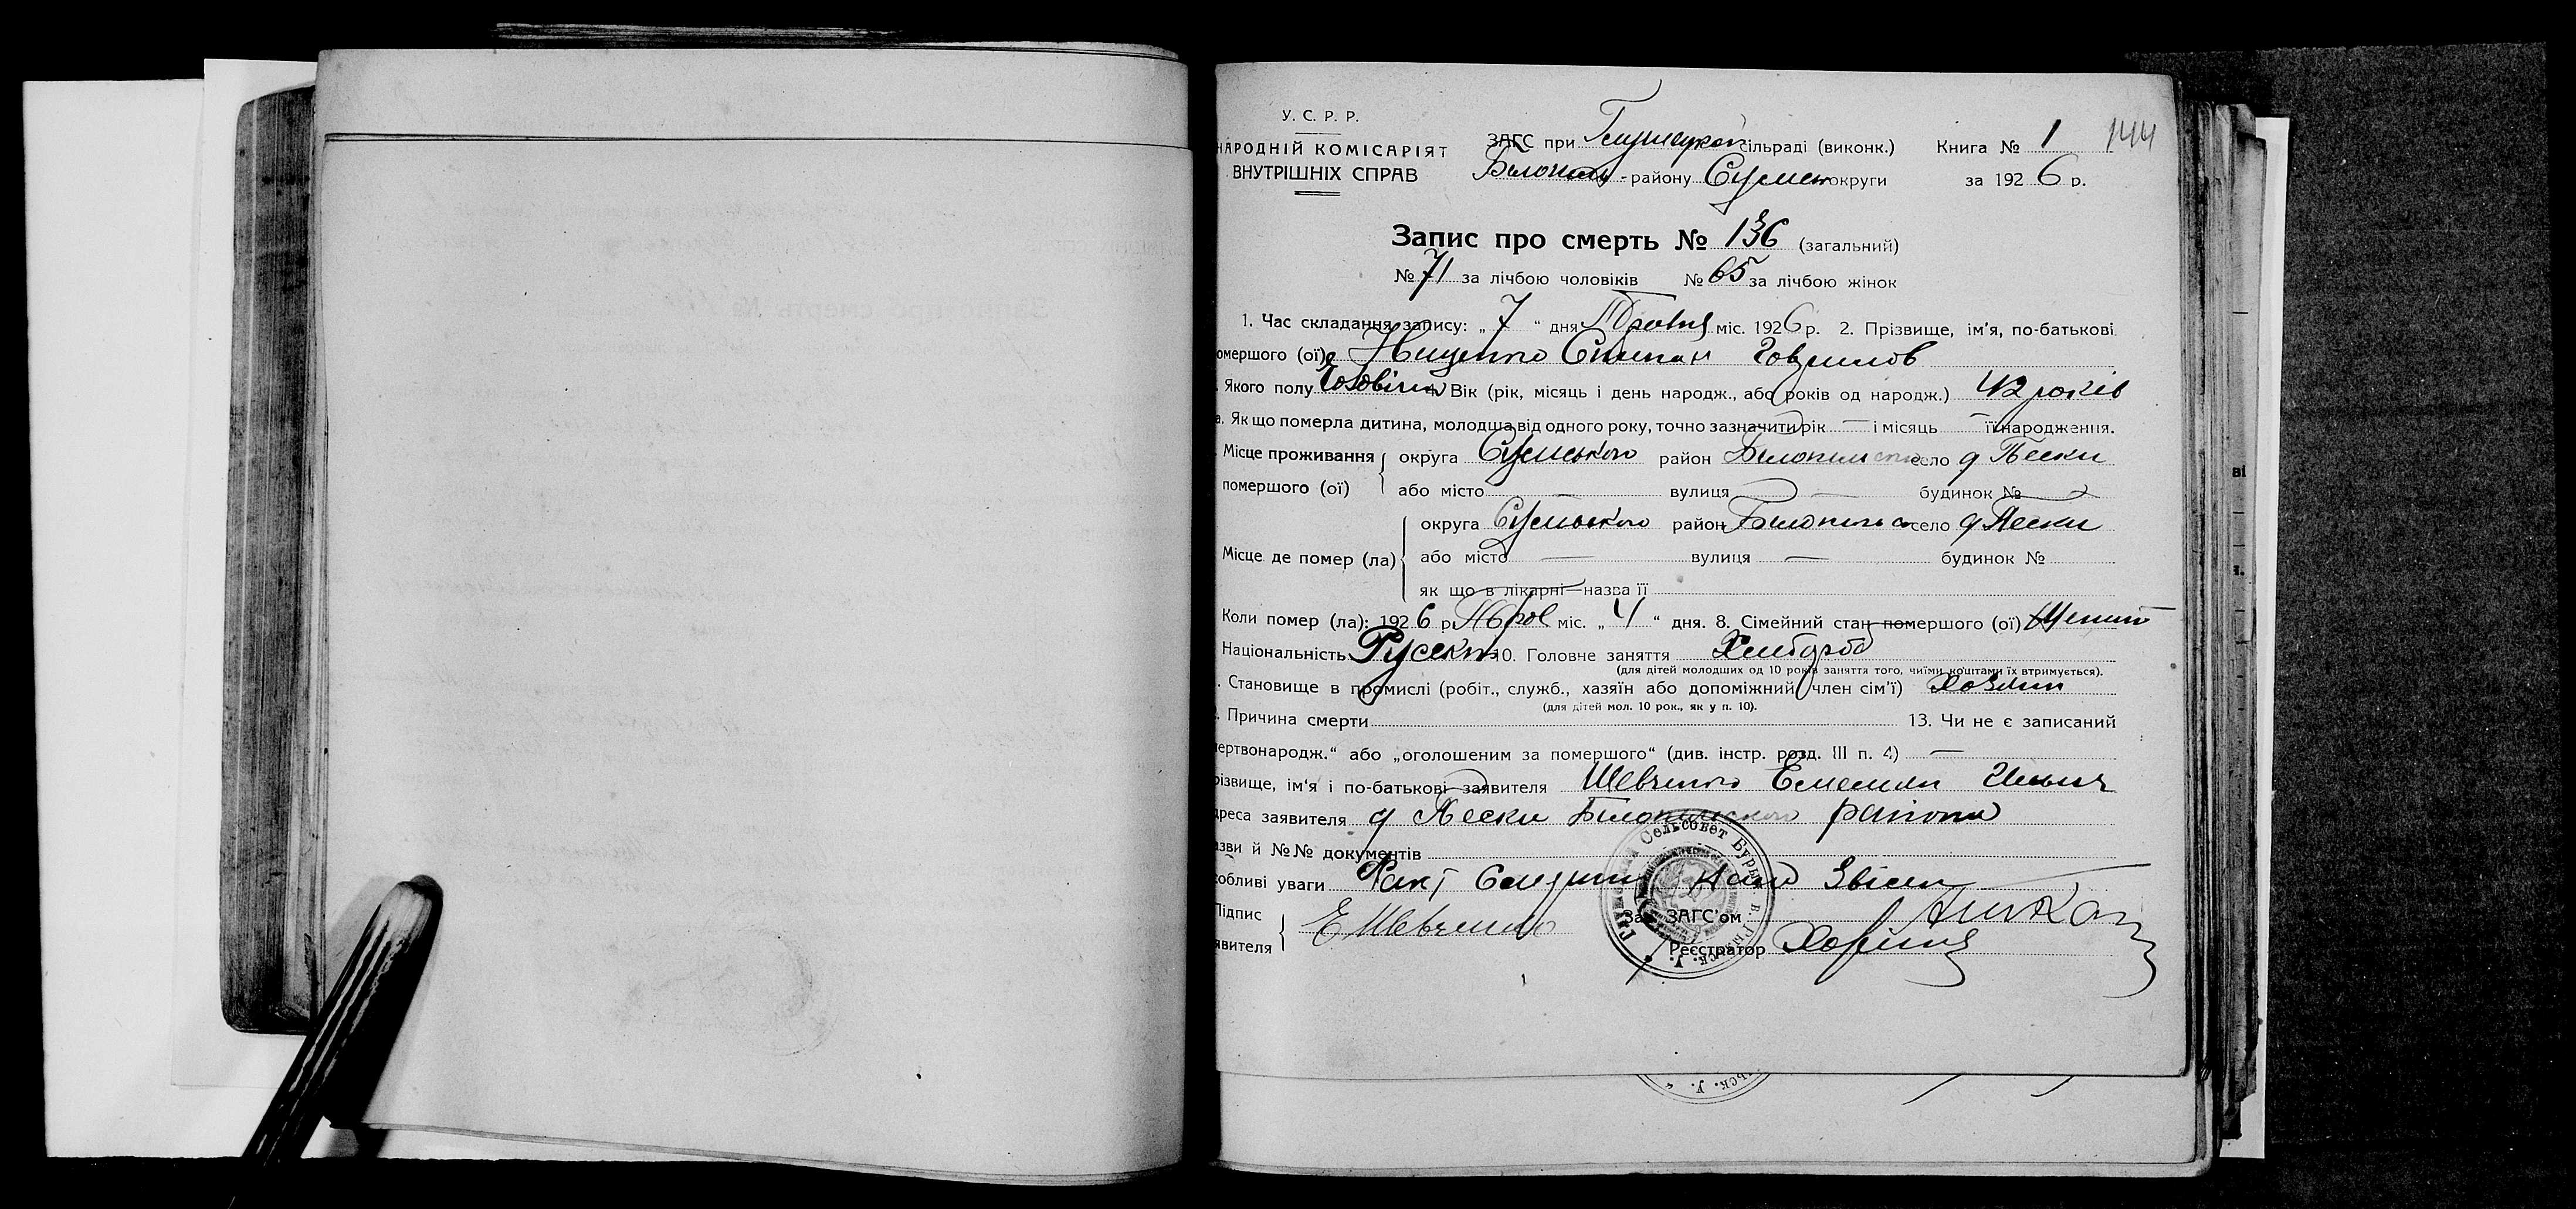 У. С. Р. Р.
НАРОДНІЙ КОМІСАРІЯТ
ВНУТРІШНІХ СПРАВ
ЗАГС при сільраді (виконк.) Книга № 1 144
району Сумськ округи за 1926 р.
Запис про смерть № 136 (загальний)
№ 71 за лічбою чоловіків № 65 за лічбою жінок
1. Час складання запису: „ 7 “ дня Травня міс. 1926 р. 2. Прізвище, ім'я, по-батькові
омершого (ої) Нищенко Степан Гаврилов
Якого полу Чоловічи 4. Вік (рік, місяць і день народж., або років од народж.) 42 років
а. Як що померла дитина, молодша від одного року, точно зазначити рік — і місяць — її народження.
Місце проживання помершого (ої) округа Сумського район Білопільського село д Пески
або місто вулиця — будинок №
Місце де помер (ла) округа Сумського район Білопільс село д Пески
або місто — вулиця — будинок №
як що в лікарні—назва її
Коли помер (ла): 1926 р. міс. „ 4 “ дня. 8. Сімейний стан помершого (ої)
Національність Русский 10. Головне заняття Хлебороб
(для дітей молодших од 10 років заняття того, чиїми коштами їх втримується).
. Становище в промислі (робіт., служб., хазяїн або допоміжний член сім'ї) Хозяин
(для дітей мол. 10 рок., як у п. 10).
. Причина смерти 13. Чи не є записаний
мертвонародж.“ або „оголошеним за помершого“ (див. інстр. розд. III п. 4) —
різвище, ім'я і по-батькові заявителя Шевченко Емельян Ильич
дреса заявителя д Пески Білопільского района
азви й №№ документів
собливі уваги Факт
Підпис
явителя Е Шевченко
Зав. ЗАГС'ом
Реєстратор
Сельсовет